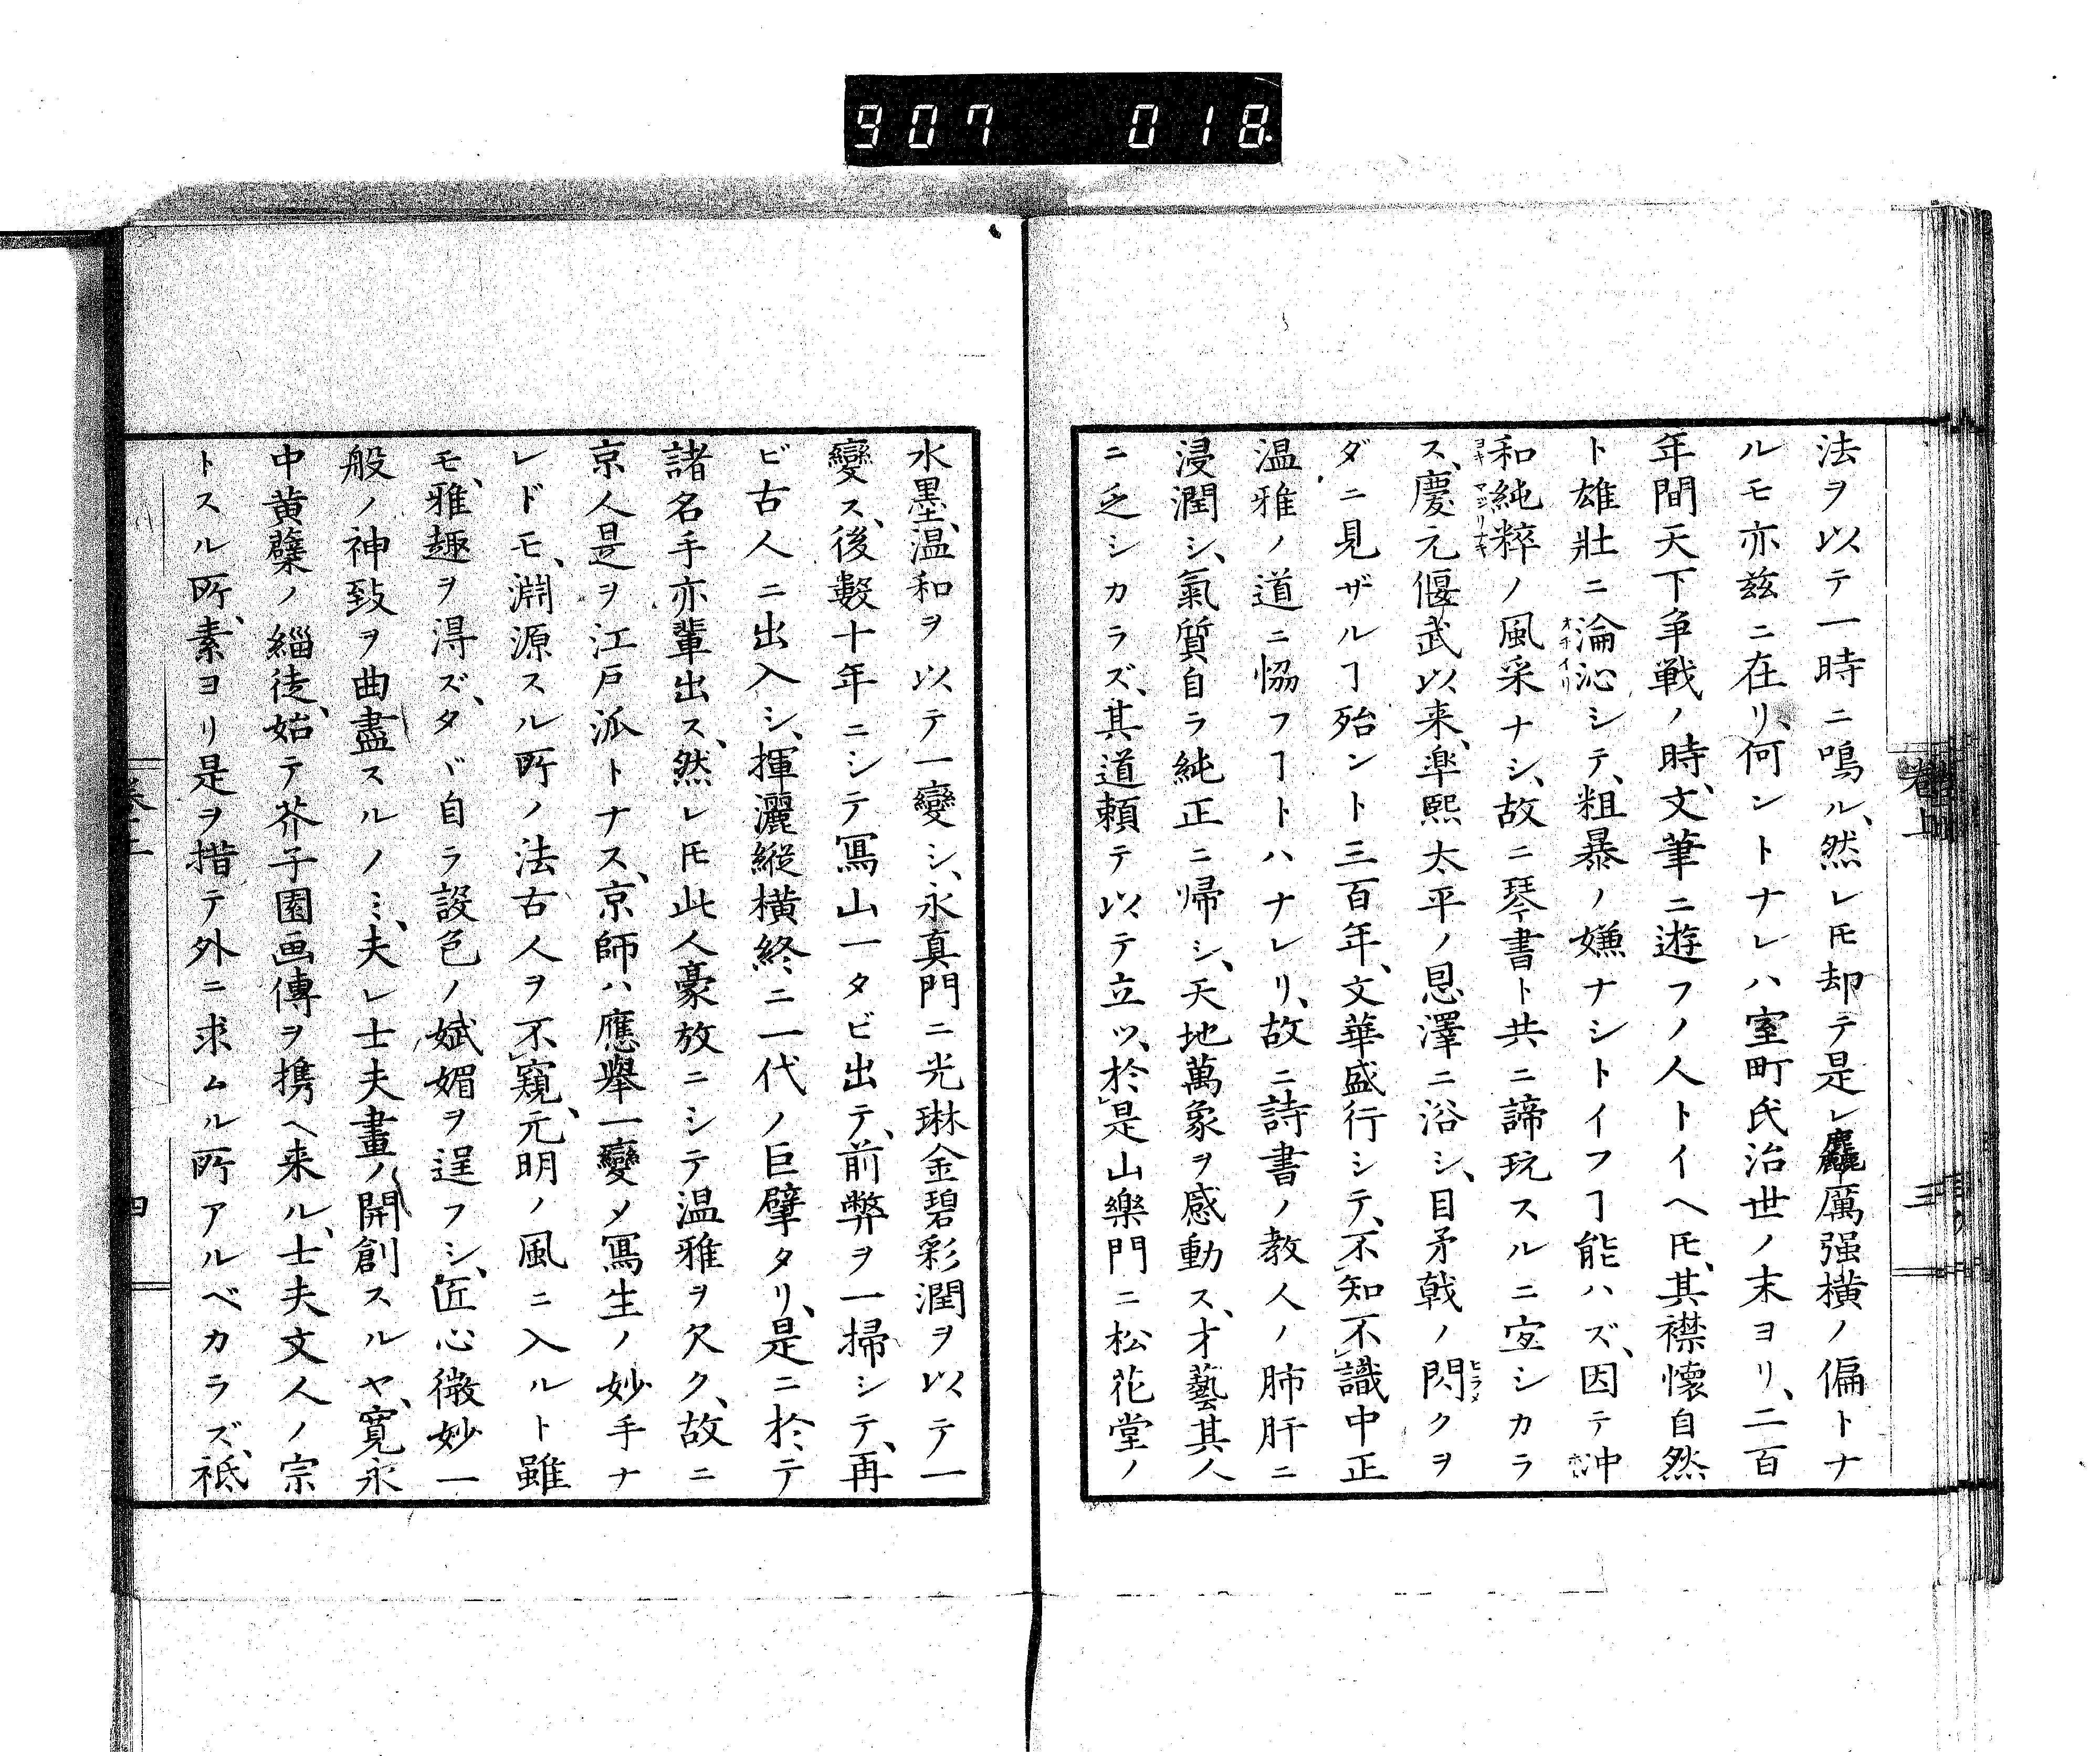 907 018
法ヲ以テ一時ニ鳴ル、然レ𪜈却テ是レ麤厲强横ノ偏トナ
ルモ亦茲ニ在リ、何ントナレハ室町氏治世ノ末ヨリ、二百
年間天下争戦ノ時、文筆ニ遊フノ人トイヘ𪜈、其襟懐自然
ト雄壮ニ淪沁シテ、粗暴ノ嫌ナシトイフヿ能ハズ、因テ冲
オチイリ
和純粹ノ風采ナシ、故ニ琴書ト共ニ諦玩スルニ宜シカラ
ヨキマジリナキ
ス、慶元偃武以来、楽熙太平ノ恩澤ニ浴シ、目矛戟ノ閃クヲ
ヒラメ
ダニ見ザルヿ殆ント三百年、文華盛行シテ、不知不識中正
温雅ノ道ニ恊フヿトハナレリ、故ニ詩書ノ教人ノ肺肝ニ
浸潤シ、氣質自ラ純正ニ帰シ、天地萬象ヲ感動ス、才藝其人
ニ乏シカラズ、其道頼テ以テ立ツ、於是山樂門ニ松花堂ノ
卷上
三
水墨、温和ヲ以テ一變シ、永真門ニ光琳金碧彩潤ヲ以テ一
變ス、後數十年ニシテ冩山一タビ出テ、前弊ヲ一掃シテ、再
ビ古人ニ出入シ、揮灑縦横終ニ一代ノ巨擘タリ、是ニ於テ
諸名手亦輩出ス、然レ𪜈此人豪放ニシテ温雅ヲ欠ク、故ニ
京人是ヲ江戸派トナス、京師ハ應舉一變〆冩生ノ妙手ナ
レドモ、淵源スル所ノ法古人ヲ不窺、元明ノ風ニ入ルト雖
モ、雅趣ヲ得ズ、タヾ自ラ設色ノ斌媚ヲ逞フシ、匠心微妙一
般ノ神致ヲ曲盡スルノミ、夫レ士夫畫ノ開創スルヤ、寛永
中黄蘗ノ緇徒、始テ芥子園画傳ヲ携ヘ来ル、士夫文人ノ宗
トスル所、素ヨリ是ヲ措テ外ニ求ムル所アルベカラズ、祗
四